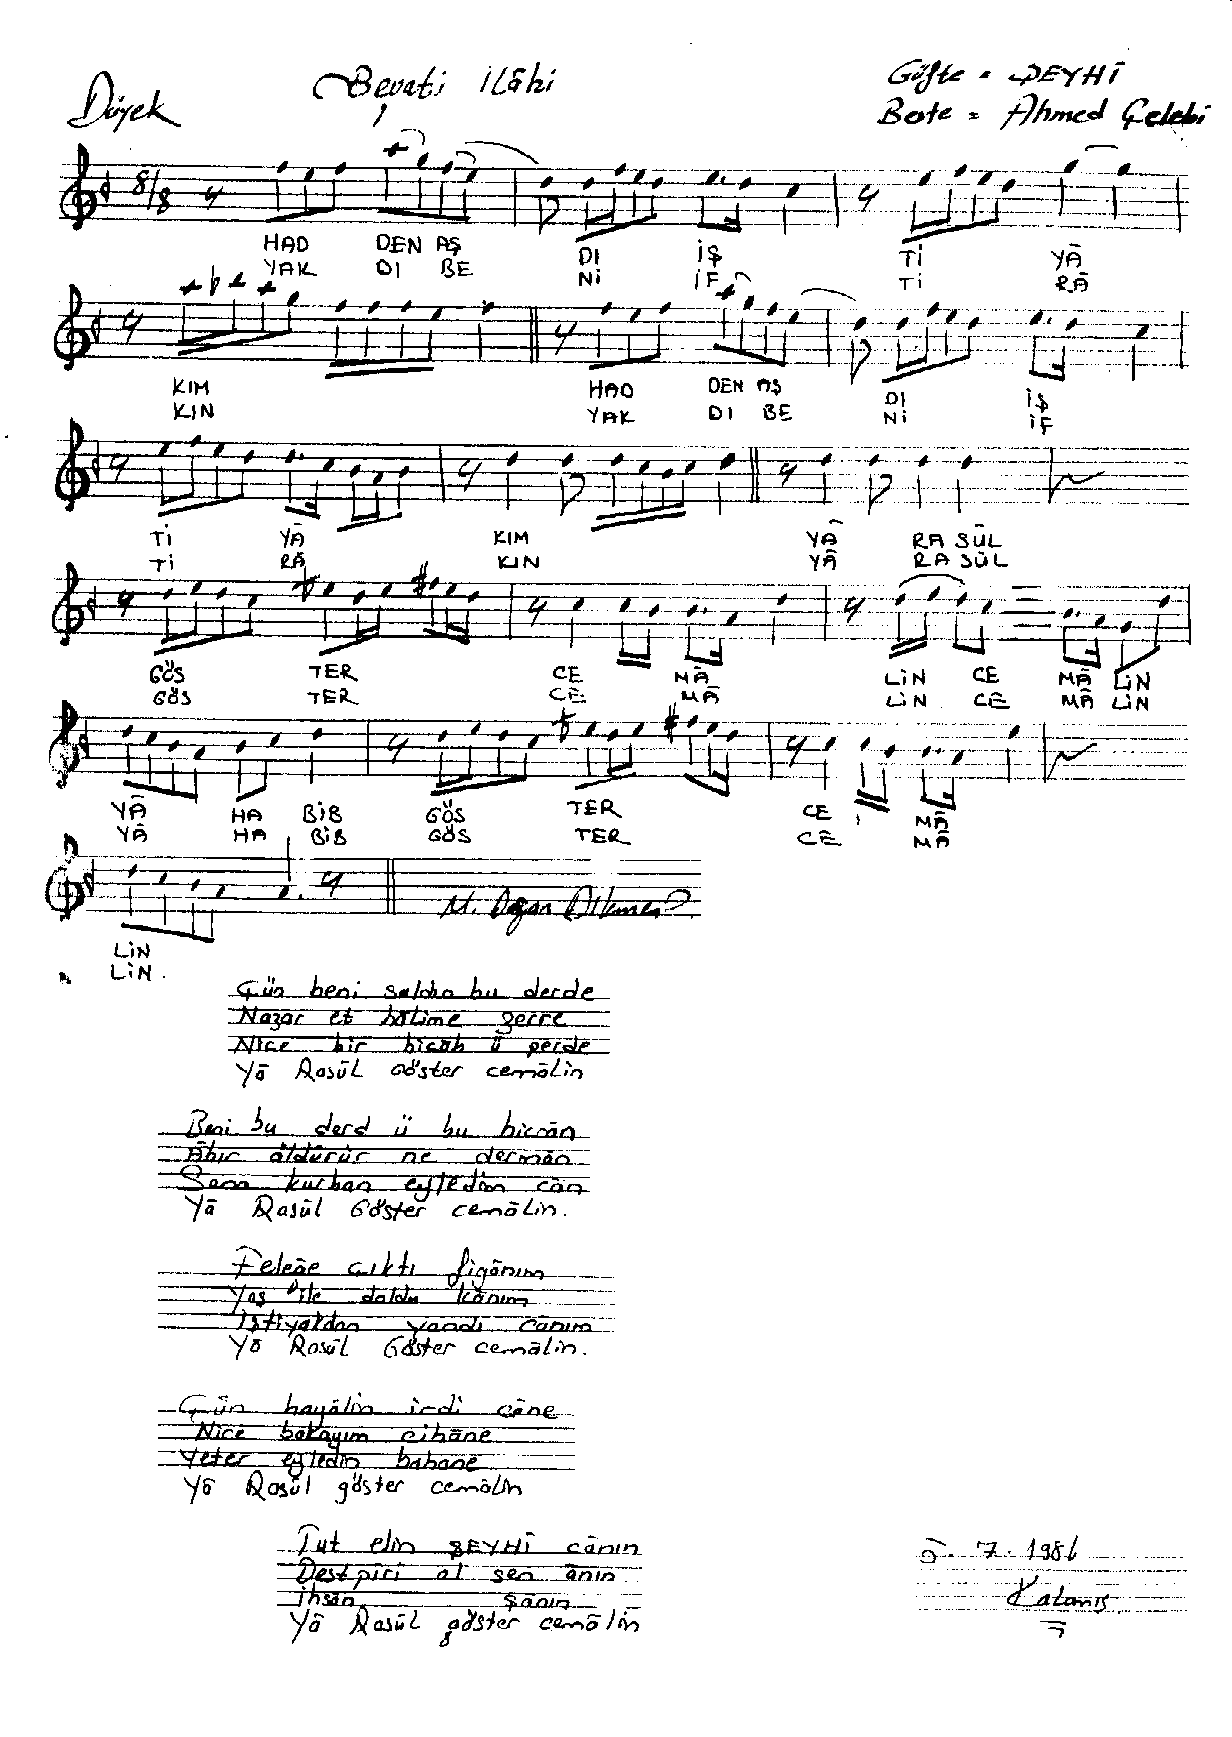 Düyek
Beyati İlâhi
Güfte = ŞEYHÎ
Beste = Ahmed Çelebi
8/8
HAD DEN AŞ DI İŞ Tİ YÂ
YAK DI BE Nİ İF Tİ RÂ
KIM HAD DEN AŞ DI İŞ
KIN YAK DI BE Nİ İF
Tİ YÂ KIM YÂ RA SÛL
Tİ RÂ KIN YÂ RA SÛL
GÖS TER CE MÂ LİN CE MÂ LİN
GÖS TER CE MÂ LİN CE MÂ LİN
YÂ HA BİB GÖS TER CE MÂ
YÂ HA BİB GÖS TER CE MÂ
LİN
LİN.
M. Doğan Dikmen
Çün beni saldın bu derde
Nazar et hâlime zerre
Nice bir hicâb ü perde
Yâ Rasûl Göster cemâlin
Beni bu derd ü bu hicrân
Âhır öldürür ne dermân
Sana kurban eyledim cân
Yâ Rasûl Göster cemâlin.
Feleğe çıktı figânım
Yaş ile doldu kânım
İştiyakdan yandı cânım
Yâ Rasûl Göster cemâlin.
Çün hayâlin irdi câne
Nice bakayım cihâne
Yeter eyledin bahane
Yâ Rasûl göster cemâlin
Tut elin ŞEYHÎ cânın
Dest pîri ol sen ânın
İhsân şânın
Yâ Rasûl göster cemâlin
7. 1986
Kalamış